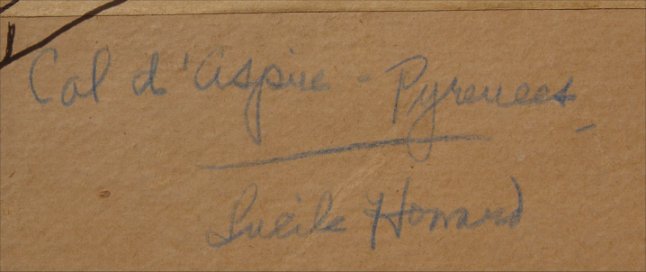 Col d'Aspin - Pyrenees
Lucile Howard